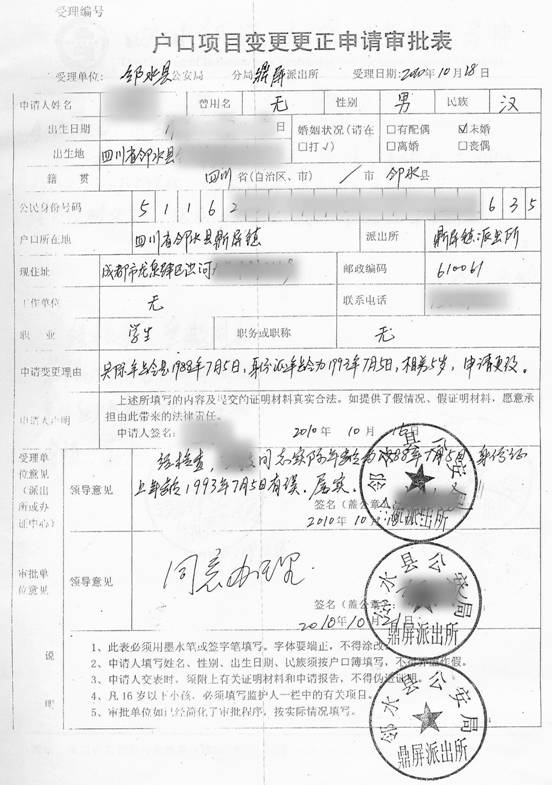 受理编号
户口项目变更更正申请审批表
受理单位: 邻水县公安局 分局鼎屏派出所 受理日期:2010年10月18日
申请人姓名 曾用名 无 性别 男 民族 汉
出生日期 1 日 婚姻状况(请在□打√) □有配偶 ☑未婚 □离婚 □丧偶
出生地 四川省邻水县
籍贯 四川 省(自治区、市) / 市 邻水 县
公民身份号码 5 1 1 6 2 6 3 5
户口所在地 四川省邻水县鼎屏镇 派出所 鼎屏镇派出所
现住址 成都市龙泉驿区洪河 邮政编码 610061
工作单位 无 联系电话
职业 学生 职务或职称 无
申请变更理由 实际年龄是1988年7月5日,身份证年龄为1993年7月5日,相差5岁,申请更改。
申请人声明 上述所填写的内容及提交的证明材料真实合法。如提供了假情况、假证明材料,愿意承担由此带来的法律责任。
申请人签名: 2010年10月18日
受理单位意见(派出所或办证中心) 领导意见 经检查, 同志实际年龄为1988年7月5日,身份证
上年龄1993年7月5日有误,属实。
签名(盖公章)
2010年10月
邻水县公安局
鼎屏派出所
审批单位意见 领导意见 同意办理
签名(盖公章)
2010年10月21日
邻水县公安局
鼎屏派出所
说明 1、此表必须用墨水笔或签字笔填写。字体要端正,不得涂改。
2、申请人填写姓名、性别、出生日期、民族须按户口簿填写,不得弄虚作假。
3、申请人交表时、须附上有关证明材料和申请报告,不得伪造证明。
4、凡16岁以下小孩、必须填写监护人一栏中的有关项目。
5、审批单位如已经简化了审批程序,按实际情况填写。
邻水县公安局
鼎屏派出所